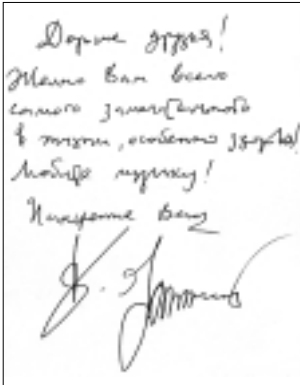 Дорогие друзья!
Желаю Вам всего
самого замечательного
в жизни, особенно здоровья!
Любите музыку!
Искренне Ваш